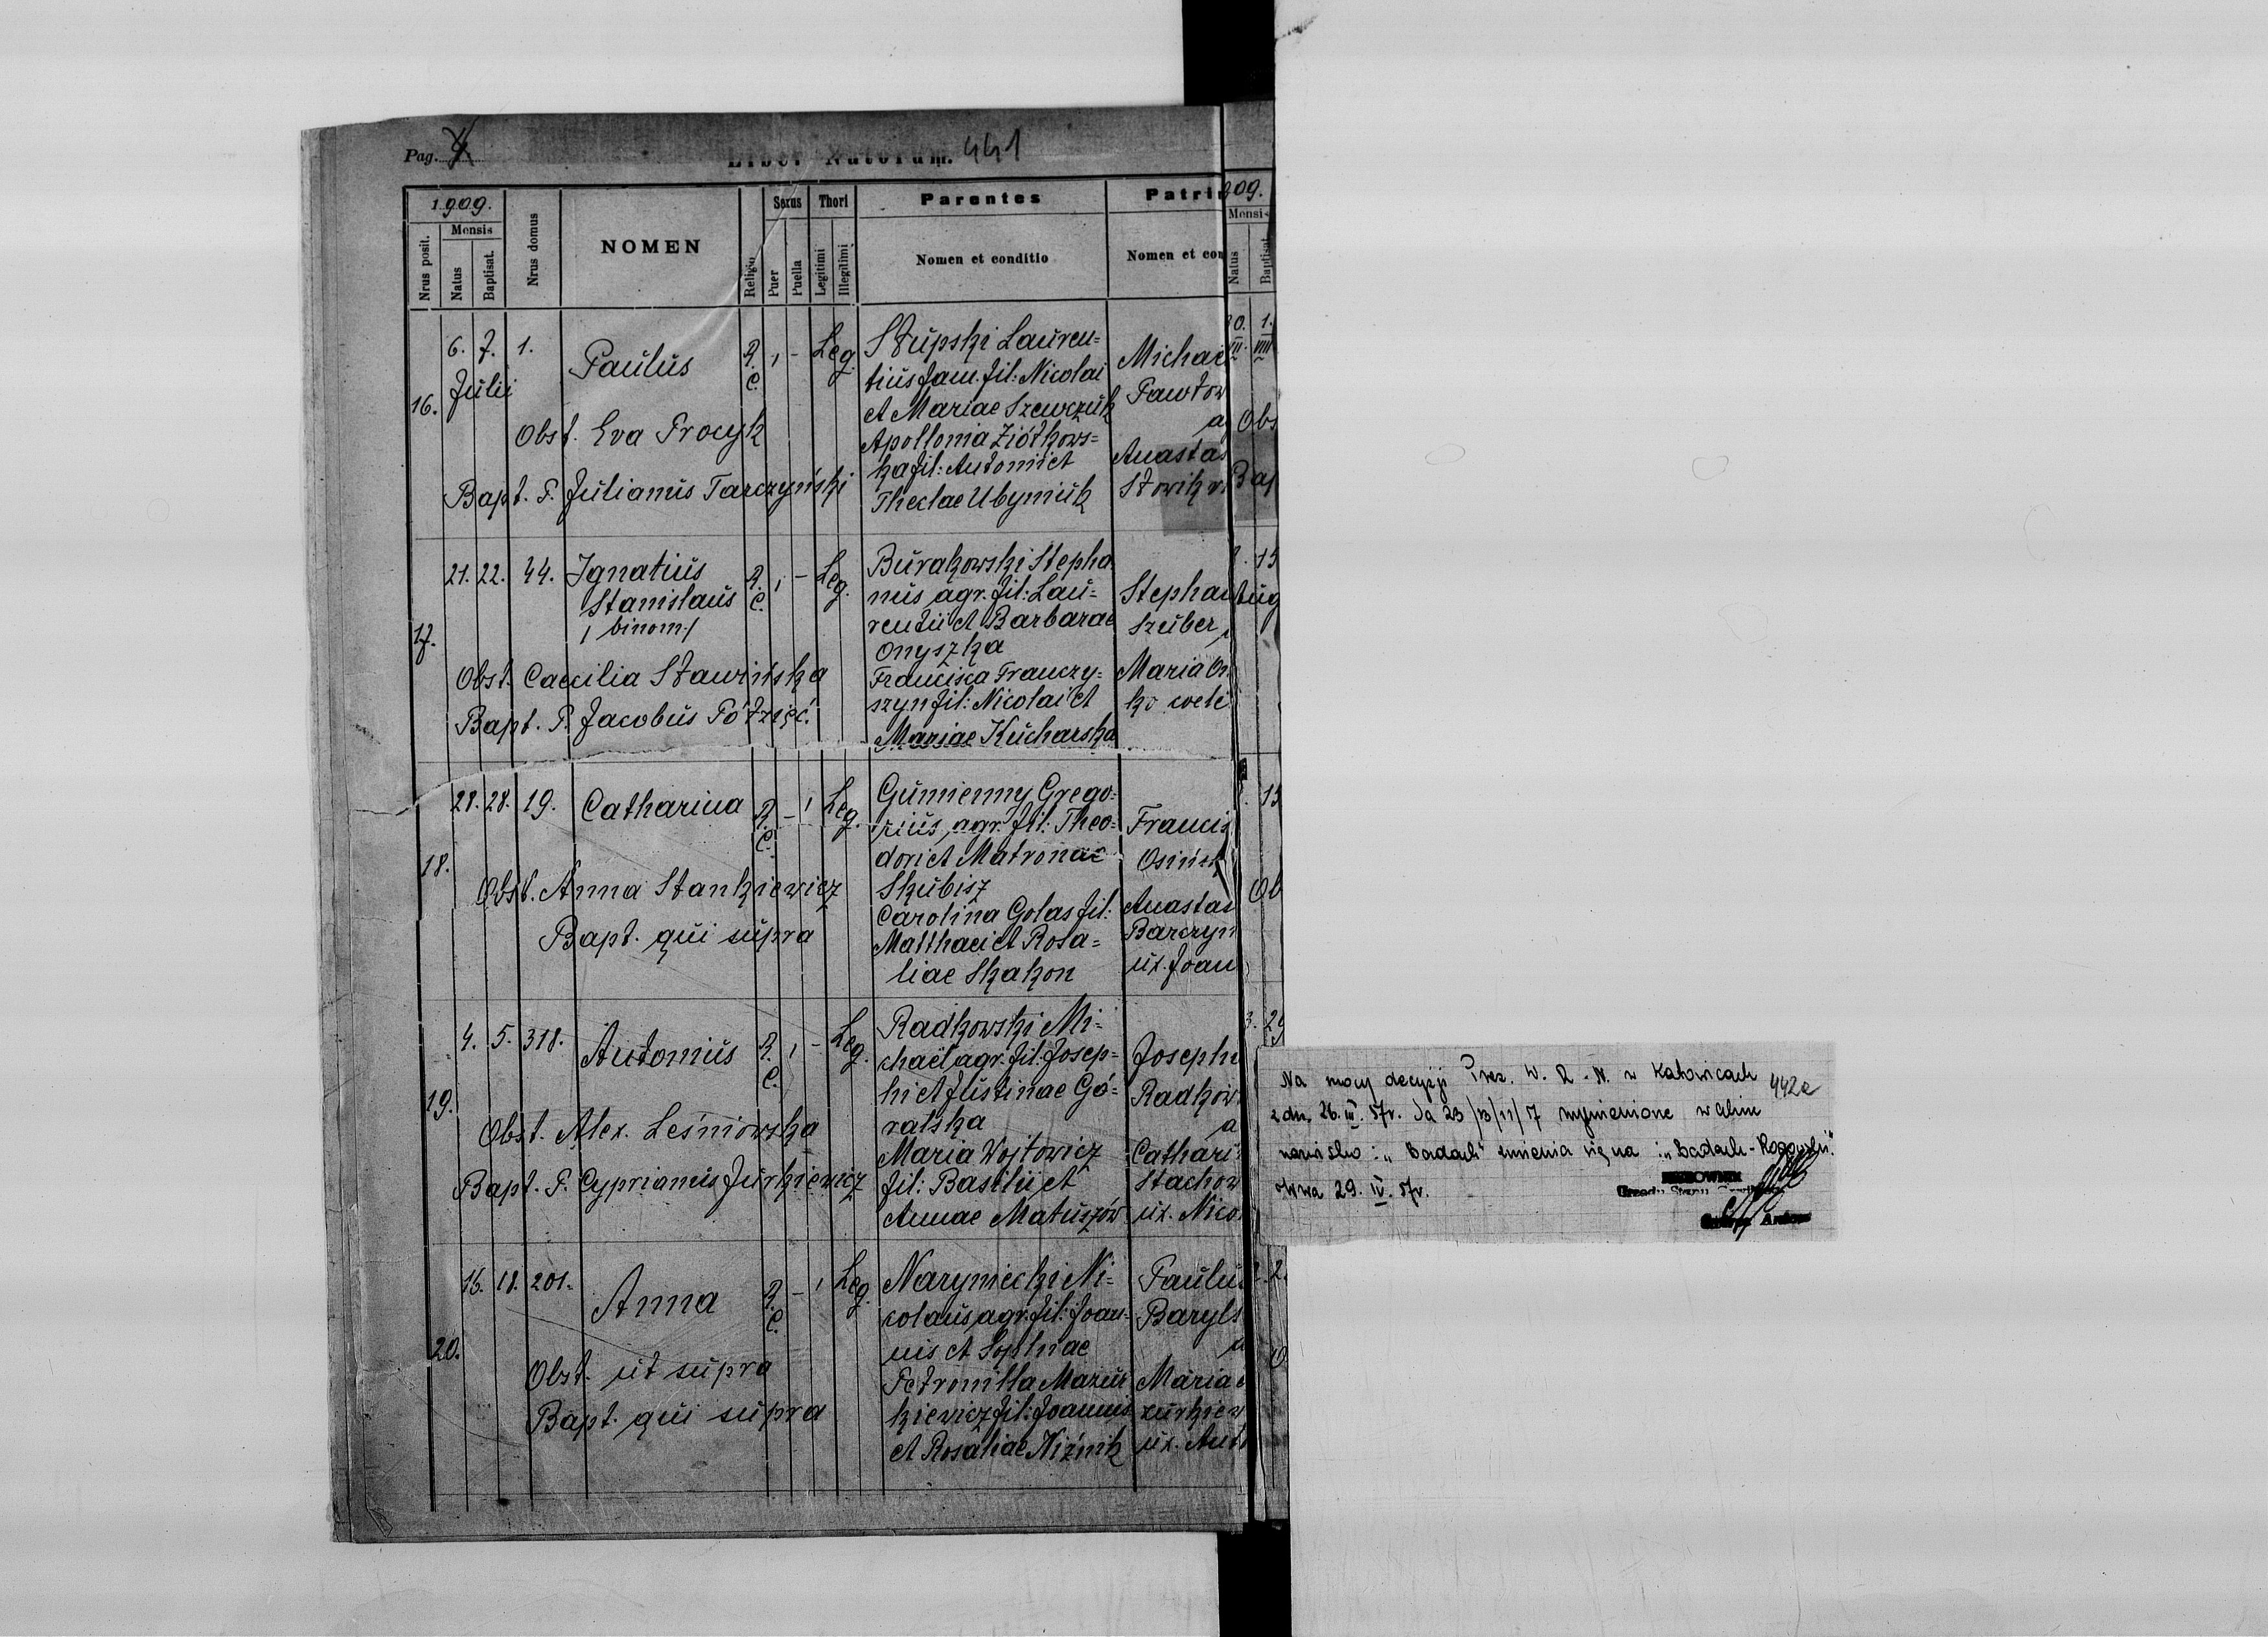 Pag. 4 Liber Natorum. 441
1909.
Nrus posit.
Mensis
Natus
Baptisat.
Nrus domus
NOMEN
Religio
Sexus
Puer
Puella
Thori
Legitimi
Illegitimi
Parentes
Nomen et conditio
Patri
Nomen et con
16. 6. 7. Julii 1. Paulus R. C. 1 - Leg.
Obst. Eva Procyk
Bapt. P. Julianus Tarczyński
Słupski Lauren=
tius fam. fil: Nicolai
et Mariae Szewczuk
Apollonia Ziółkows=
ka fil: Antonii et
Theclae Ubyniuk
Michae
Pawłow
a
Anastas
Słowik
17. 21. 22. 44. Ignatius R. C. 1 - Leg.
Stanislaus
/binom/
Obst. Caecilia Sławińska
Bapt. P. Jacobus Półzięć.
Burakowski Stepha
nus agr. fil: Lau=
rentii et Barbarae
Onyszka
Francisca Franczy=
szyn fil: Nicolai et
Mariae Kucharska
Stephan
Szuber
Maria On
ko coele
18. 28. 28. 19. Catharina R. C. - 1 Leg.
Obst. Anna Stankiewicz
Bapt. qui supra
Gumienny Grego=
rius agr. fil: Theo=
dori et Matronae
Skubisz
Carolina Golas fil:
Matthaei et Rosa=
liae Skakon
Francis
Osińsk
Anastas
Barczyn
ux. Joan
19. 4. 5. 318. Antonius R. C. 1 - Leg.
Obst. Alex. Leśniowska
Bapt. P. Cyprianus Jurkiewicz
Radkowski Mi=
chaël agr. fil: Josep=
hi et Justinae Gó=
ralska
Maria Wojtowicz
fil: Basilii et
Annae Matuszów
Josephu
Radkow
a
Cathari
Stachow
ux. Nico
20. 16. 18. 201. Anna R. C. - 1 Leg.
Obst. ut supra
Bapt. qui supra
Naryniecki Ni=
colaus, agr. fil: Joan=
nis et Sophiae
Petronilla Mazur
kiewicz fil: Joannis
et Rosaliae Niżnik
Paulus
Baryls
a
Maria
zurkiew
ux. Anto
909.
Mensis
Natus
Baptisat.
1.
VIII
Obs
Bap
15
Aug
15
Ob
3.
Na mocy decyzji Prez. W. R. N. w Katowicach 442a
z dn. 26. III. 57r. Sa 23/13/11/7 wymienione w akcie
nazwisko: "Badach" zmienia się na: "Badach-Rogowski".
29. IV. 57r.
KIEROWNIK
Urzędu Stanu Cywilnego